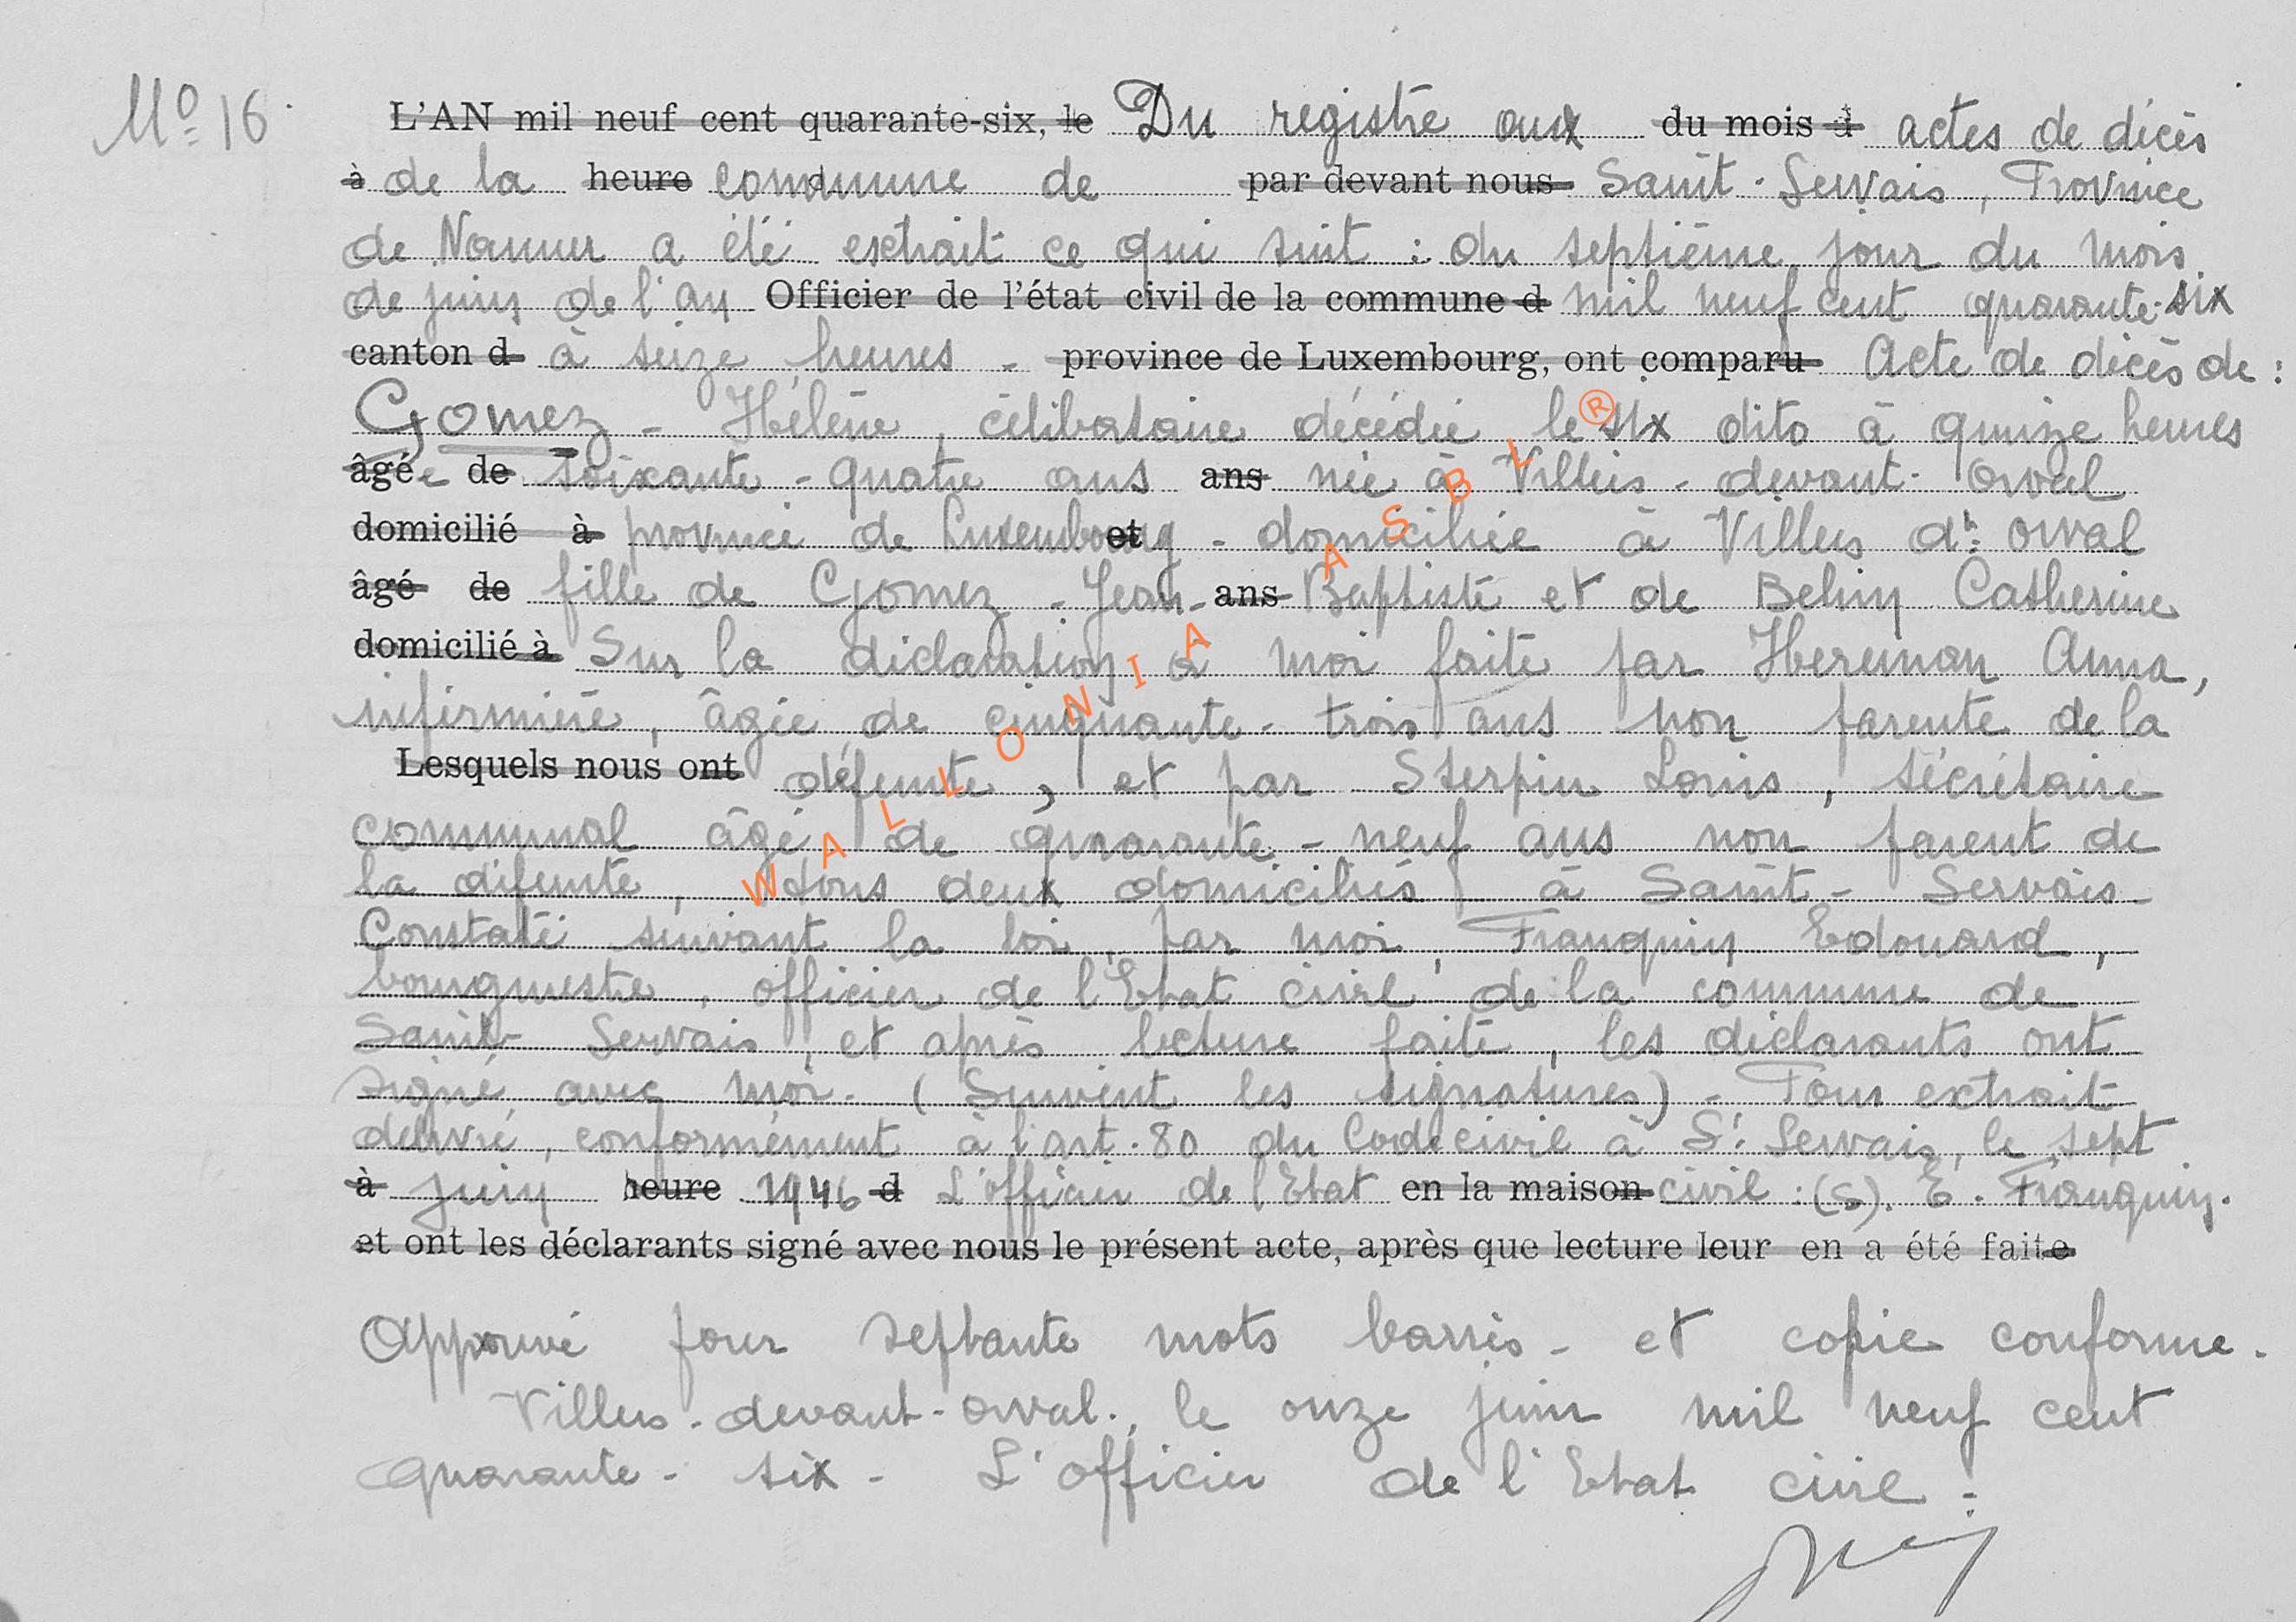 N° 16
L'AN mil neuf cent quarante-six, le Du registre aux du mois d actes de décès
à de la heure commune de par devant nous Saint-Servais, Province
de Namur a été extrait ce qui suit : du septième jour du mois
de juin de l'an Officier de l'état civil de la commune d mil neuf cent quarante-six
canton d à seize heures - province de Luxembourg, ont comparu Acte de décès de :
Gomez - Hélène, célibataire décédée le six dito à quinze heures
âgée de soixante-quatre ans ans née à Villers-devant-Orval
domicilié à province de Luxembourg et - domiciliée à Villers dt Orval
âgé de fille de Gomez - Jean- ans Baptiste et de Behin Catherine
domicilié à Sur la déclaration à moi faite par Hereman Anna,
infirmière, âgée de cinquante-trois ans non parente de la
Lesquels nous ont défunte, et par Sterpin Louis, sécrétaire
communal âgé de quarante-neuf ans non parent de
la défunte, tous deux domiciliés à Saint-Servais-
Constaté suivant la loi, par moi, Franquin Edouard,
bourgmestre, officier de l'Etat civil de la commune de
Saint-Servais, et après lecture faite, les déclarants ont
signé avec moi. (Suivent les signatures) - Pour extrait
délivré, conformément à l'art. 80 du Code civil à St Servais, le sept
à juin heure 1946 d L'officier de l'Etat en la maison civil : (s). E. Franquin.
et ont les déclarants signé avec nous le présent acte, après que lecture leur en a été faite
Approuvé pour septante mots barrés - et copie conforme.
Villers-devant-Orval., le onze juin mil neuf cent
quarante-six - L'officier de l'Etat civil :
WALLONIA ASBL ®